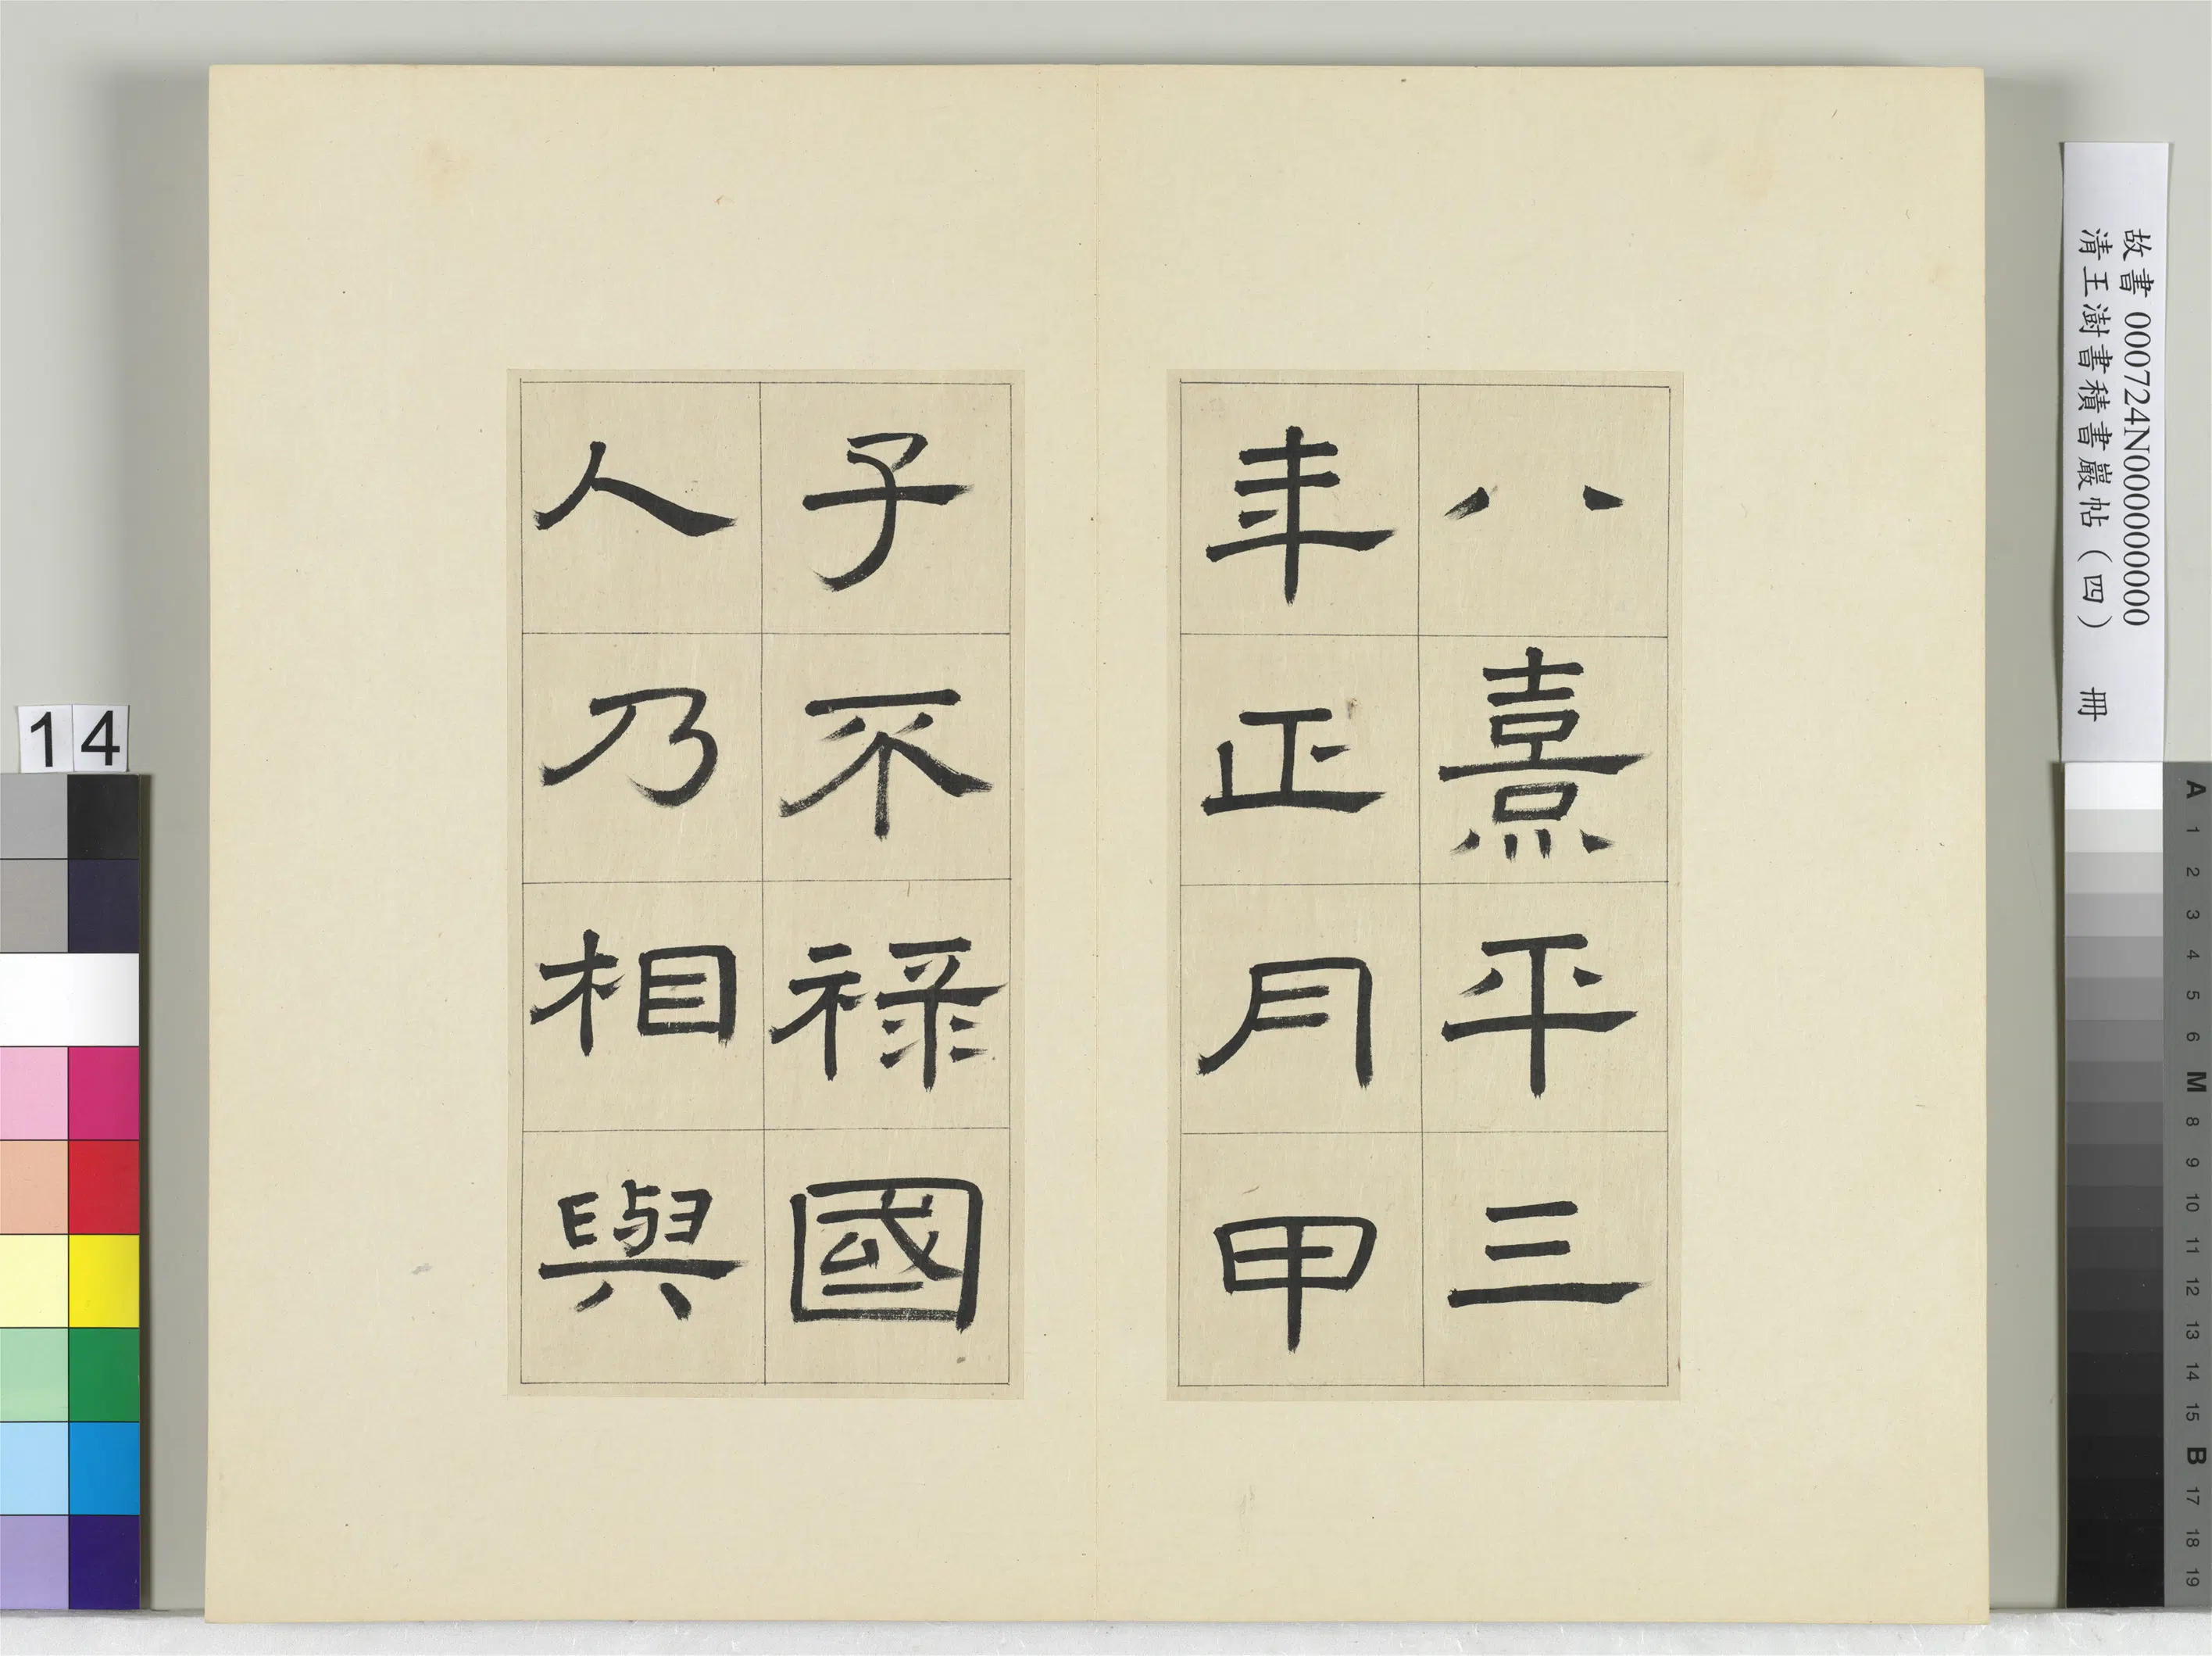 八熹平三
年正月甲
子不祿國
人乃相與
故書 000724N000000000
清王澍書積書巖帖（四） 冊
14
A
1
2
3
4
5
6
M
8
9
10
11
12
13
14
15
B
17
18
19